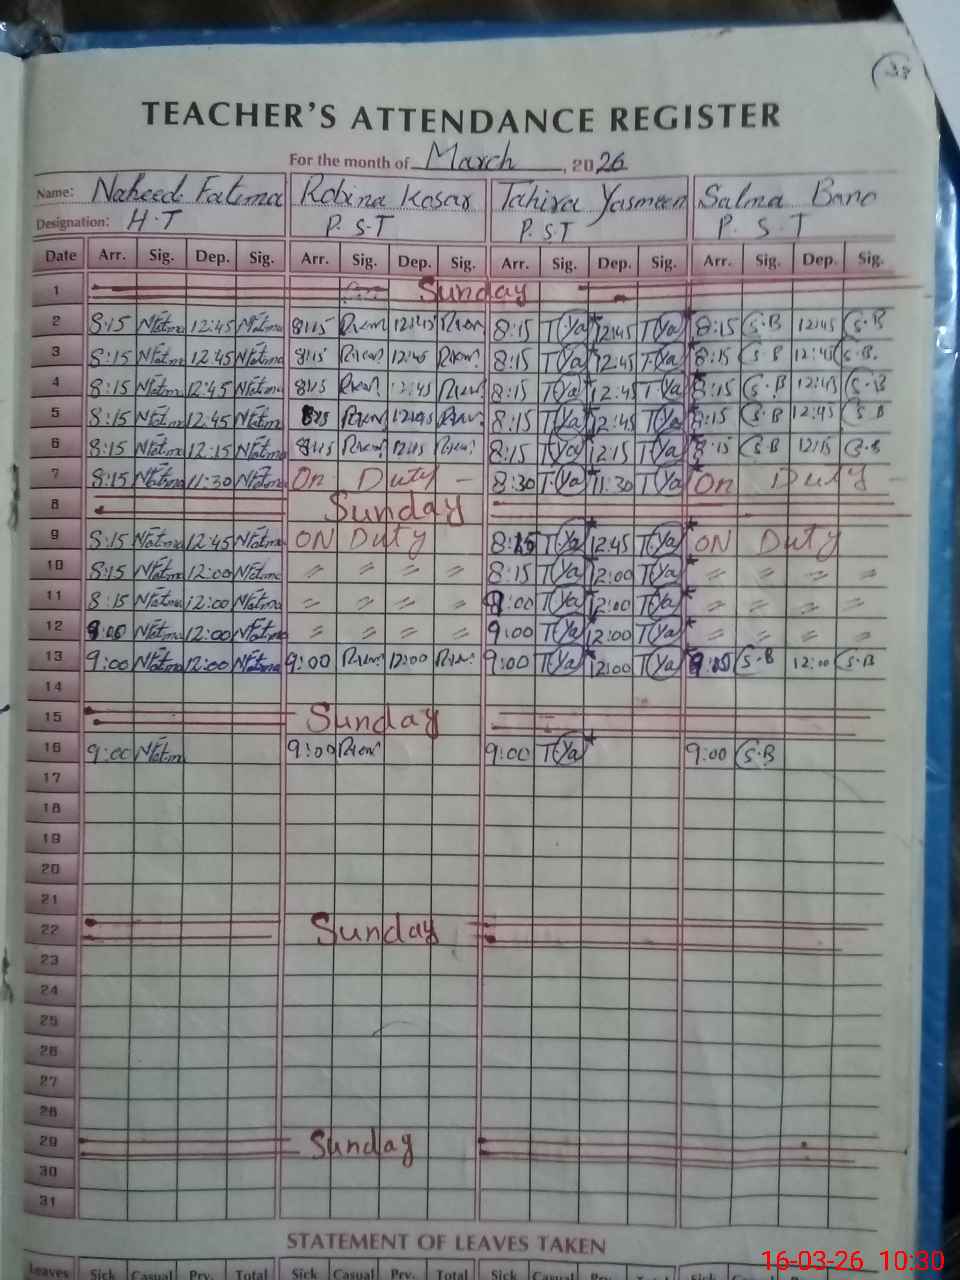 33
TEACHER'S ATTENDANCE REGISTER
For the month of March, 2026
Name: Naheed Fatima Robina Kosar Tahira Yasmeen Salma Bano
Designation: H.T P.S.T P.S.T P.S.T
Date Arr. Sig. Dep. Sig. Arr. Sig. Dep. Sig. Arr. Sig. Dep. Sig. Arr. Sig. Dep. Sig.
1 Sunday
2 8:15 NFatma 12:45 NFatma 8:15 12:45 8:15 T(Ya) 12:45 T(Ya) 8:15 S.B 12:45 S.B
3 8:15 NFatma 12:45 NFatma 8:15 12:45 8:15 T(Ya) 12:45 T(Ya) 8:15 S.B 12:45 S.B.
4 8:15 NFatma 12:45 NFatma 8:15 12:45 8:15 T(Ya) 12:45 T(Ya) 8:15 S.B 12:45 S.B
5 8:15 NFatma 12:45 NFatma 8:15 12:45 8:15 T(Ya) 12:45 T(Ya) 8:15 S.B 12:45 S.B
6 8:15 NFatma 12:15 NFatma 8:15 12:15 8:15 T(Ya) 12:15 T(Ya) 8:15 S.B 12:15 S.B
7 8:15 NFatma 11:30 NFatma On Duty - 8:30 T(Ya) 11:30 T(Ya) On Duty -
8 Sunday
9 8:15 NFatma 12:45 NFatma ON Duty 8:15 T(Ya) 12:45 T(Ya) ON Duty
10 8:15 NFatma 12:00 NFatma 〃 〃 〃 〃 8:15 T(Ya) 12:00 T(Ya) 〃 〃 〃 〃
11 8:15 NFatma 12:00 NFatma 〃 〃 〃 〃 9:00 T(Ya) 12:00 T(Ya) 〃 〃 〃 〃
12 9:00 NFatma 12:00 NFatma 〃 〃 〃 〃 9:00 T(Ya) 12:00 T(Ya) 〃 〃 〃 〃
13 9:00 NFatma 12:00 NFatma 9:00 12:00 9:00 T(Ya) 12:00 T(Ya) S.B 12:00 S.B
14
15 Sunday
16 9:00 NFatma 9:00 9:00 T(Ya) 9:00 S.B
17
18
19
20
21
22 Sunday
23
24
25
26
27
28
29 Sunday
30
31
STATEMENT OF LEAVES TAKEN
Leaves Sick Casual Prv. Total Sick Casual Prv. Total Sick Casual Prv. Total Sick Casual Prv. Total
16-03-26 10:30